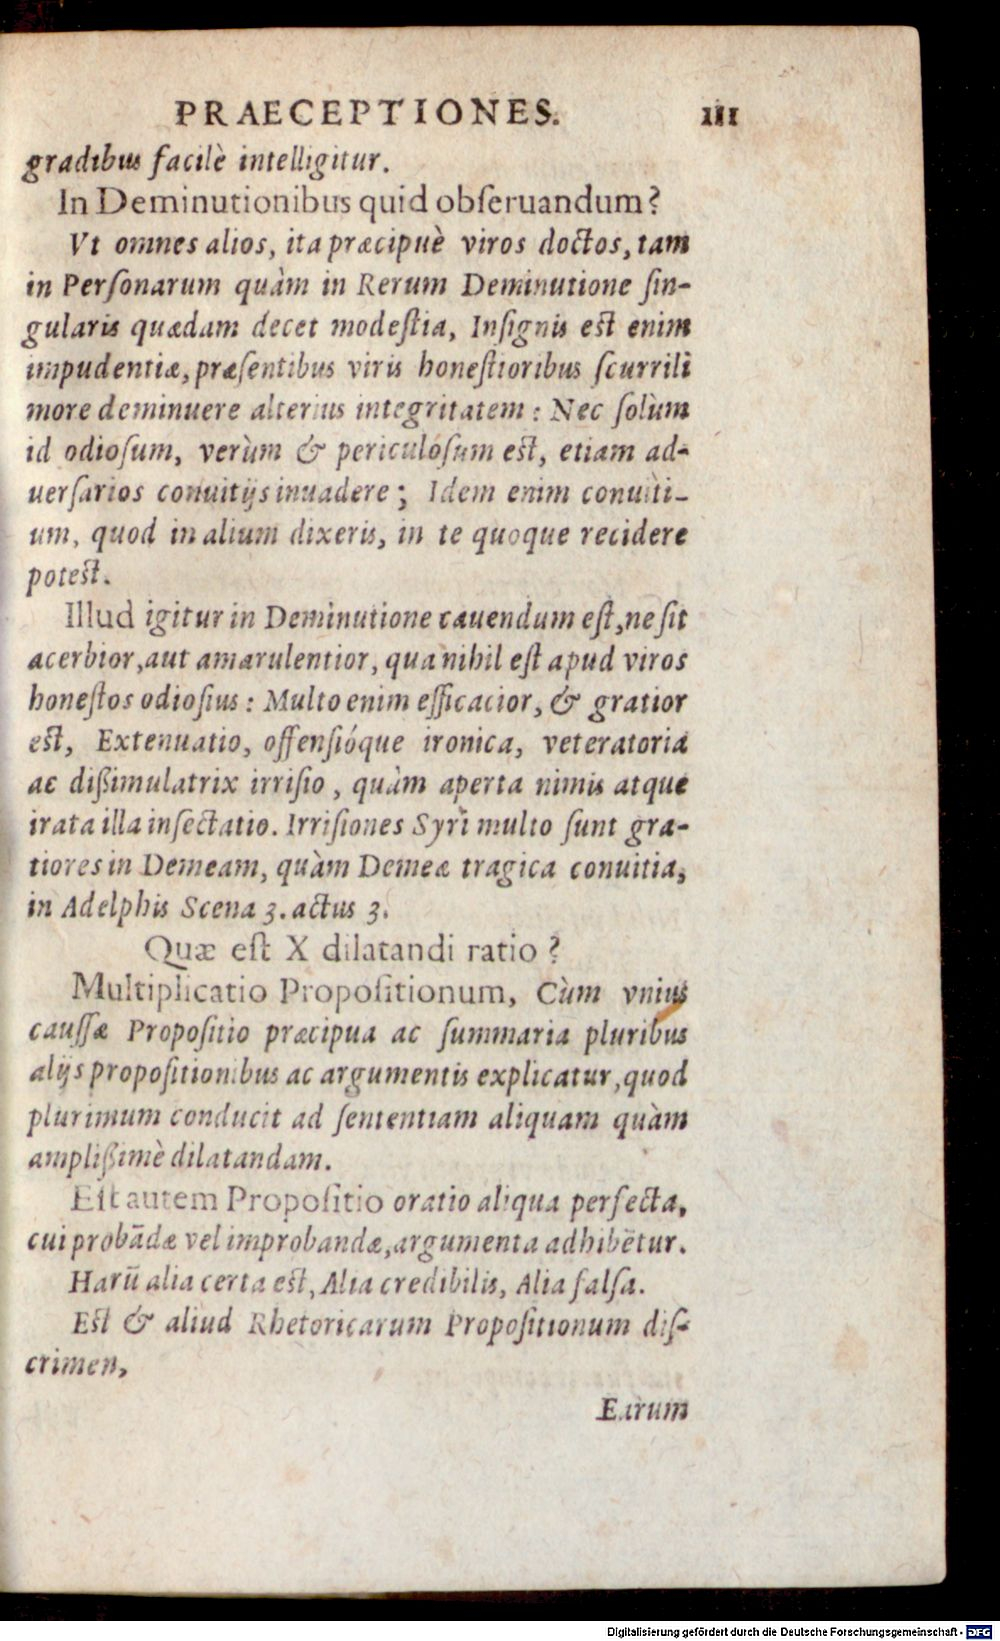 PRAECEPTIONES. 111
gradibus facilè intelligitur.
In Deminutionibus quid obſeruandum?
Vt omnes alios, ita præcipuè viros doctos, tam
in Perſonarum quàm in Rerum Deminutione ſin-
gularis quædam decet modeſtia, Inſignis est enim
impudentiæ, præſentibus viris honeſtioribus ſcurrili
more deminuere alterius integritatem: Nec ſolùm
id odioſum, verùm & periculoſum est, etiam ad-
uerſarios conuitijs inuadere; Idem enim conuiti-
um, quod in alium dixeris, in te quoque recidere
potest.
Illud igitur in Deminutione cauendum eſt, ne ſit
acerbior, aut amarulentior, qua nihil eſt apud viros
honeſtos odioſius: Multo enim efficacior, & gratior
est, Extenuatio, offenſióque ironica, veteratoria
ac dißimulatrix irriſio, quàm aperta nimis atque
irata illa inſectatio. Irriſiones Syri multo ſunt gra-
tiores in Demeam, quàm Demeæ tragica conuitia,
in Adelphis Scena 3. actus 3.
Quæ eſt X dilatandi ratio?
Multiplicatio Propoſitionum, Cùm vnius
cauſſæ Propoſitio præcipua ac ſummaria pluribus
alijs propoſitionibus ac argumentis explicatur, quod
plurimum conducit ad ſententiam aliquam quàm
amplißimè dilatandam.
Eſt autem Propoſitio oratio aliqua perfecta,
cui probādæ vel improbandæ, argumenta adhibētur.
Harū alia certa est, Alia credibilis, Alia falſa.
Est & aliud Rhetoricarum Propoſitionum diſ-
crimen,
Earum
Digitalisierung gefördert durch die Deutsche Forschungsgemeinschaft - DFG